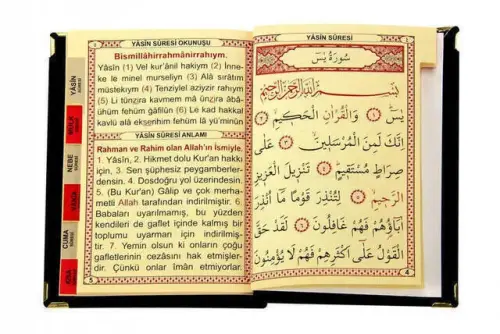 YÂSİN SÛRESİ OKUNUŞU
Bismillâhirrahmânirrahıym.
Yâsîn (1) Vel kur'ânil hakiym (2) İnne-
ke le minel murseliyn (3) Alâ sırâtım
müstekıym (4) Tenziylel aziyzir rahıym
(5) Li tünzira kavmem mâ ünzira âbâ-
ühüm fehüm ğâfilûn (6) Le kad hakkal
kavlü alâ ekserihim fehüm lâ yü'minûn
YÂSİN SÛRESİ ANLAMI
Rahman ve Rahim olan Allah'ın İsmiyle.
1. Yâsîn, 2. Hikmet dolu Kur'an hakkı
için, 3. Sen şüphesiz peygamberler-
densin. 4. Dosdoğru yol üzerindesin.
5. (Bu Kur'an) Gâlip ve çok merha-
metli Allah tarafından indirilmiştir. 6.
Babaları uyarılmamış, bu yüzden
kendileri de gaflet içinde kalmış bir
toplumu uyarman için indirilmiş-
tir. 7. Yemin olsun ki onların çoğu
gafletlerinin cezasını hak etmişler-
dir. Çünkü onlar îman etmiyorlar.
YÂSİN
SÛRESİ
MÜLK
SÛRESİ
NEBE
SÛRESİ
CUMA
SÛRESİ
YÂSİN SÛRESİ
سُورَةُ يٰسٓ
بِسْمِ اللّٰهِ الرَّحْمٰنِ الرَّحِيمِ
يٰسٓ ﴿١﴾ وَالْقُرْاٰنِ الْحَكِيمِ ﴿٢﴾
اِنَّكَ لَمِنَ الْمُرْسَلِينَ ﴿٣﴾ عَلٰى
صِرَاطٍ مُسْتَقِيمٍ ﴿٤﴾ تَنْزِيلَ الْعَزِيزِ
الرَّحِيمِ ﴿٥﴾ لِتُنْذِرَ قَوْمًا مَٓا اُنْذِرَ
اٰبَٓاؤُ۬هُمْ فَهُمْ غَافِلُونَ ﴿٦﴾ لَقَدْ حَقَّ
الْقَوْلُ عَلٰٓى اَكْثَرِهِمْ فَهُمْ لَا يُؤْمِنُونَ
4